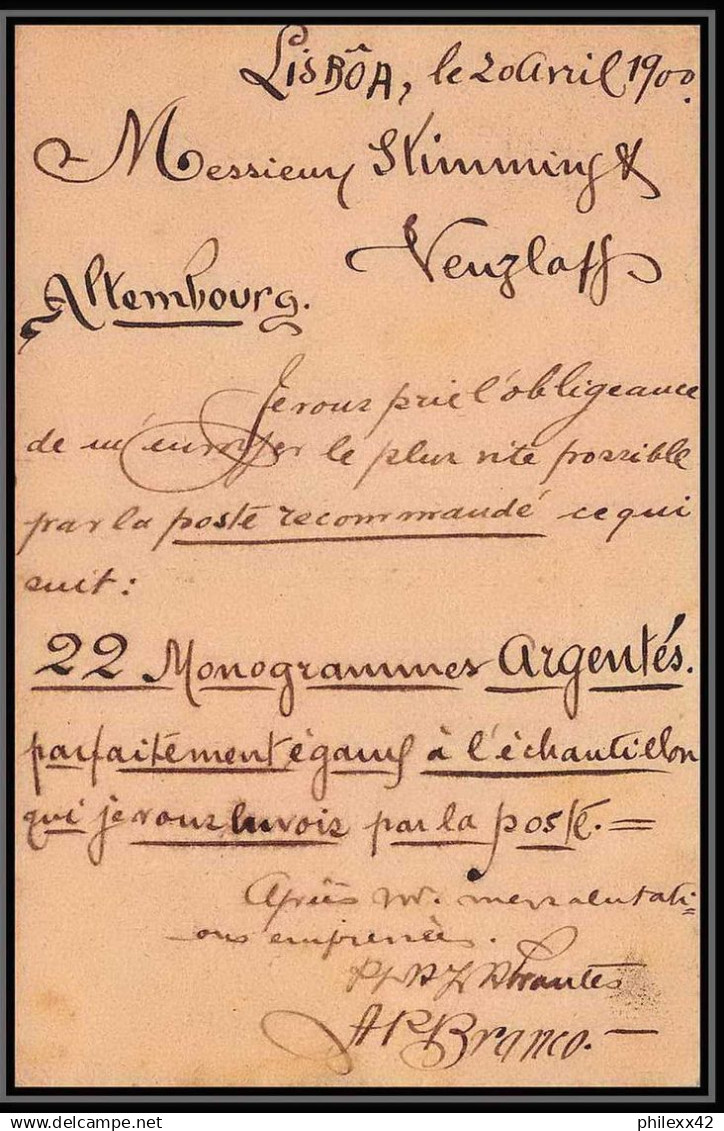 Lisbôa, le 20 Avril 1900.
Messieurs Stimming &
Venzlaff
Altembourg.
Je vous prie l'obligeance
de m'envoyer le plus vite possible
par la poste recommandé ce qui
suit:
22 Monogrammes Argentés.
parfaitement égaux à l'échantillon
qui je vous envois par la poste. =
Après mes salutati-
ons empressées.
Abrantes
A R Branco. —
philexx42